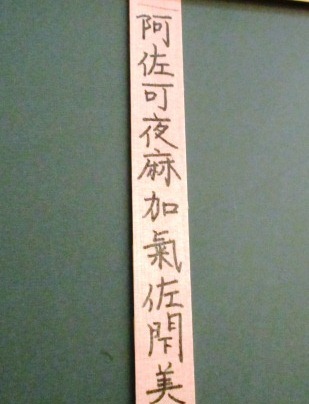 阿佐可夜麻加氣佐閇美